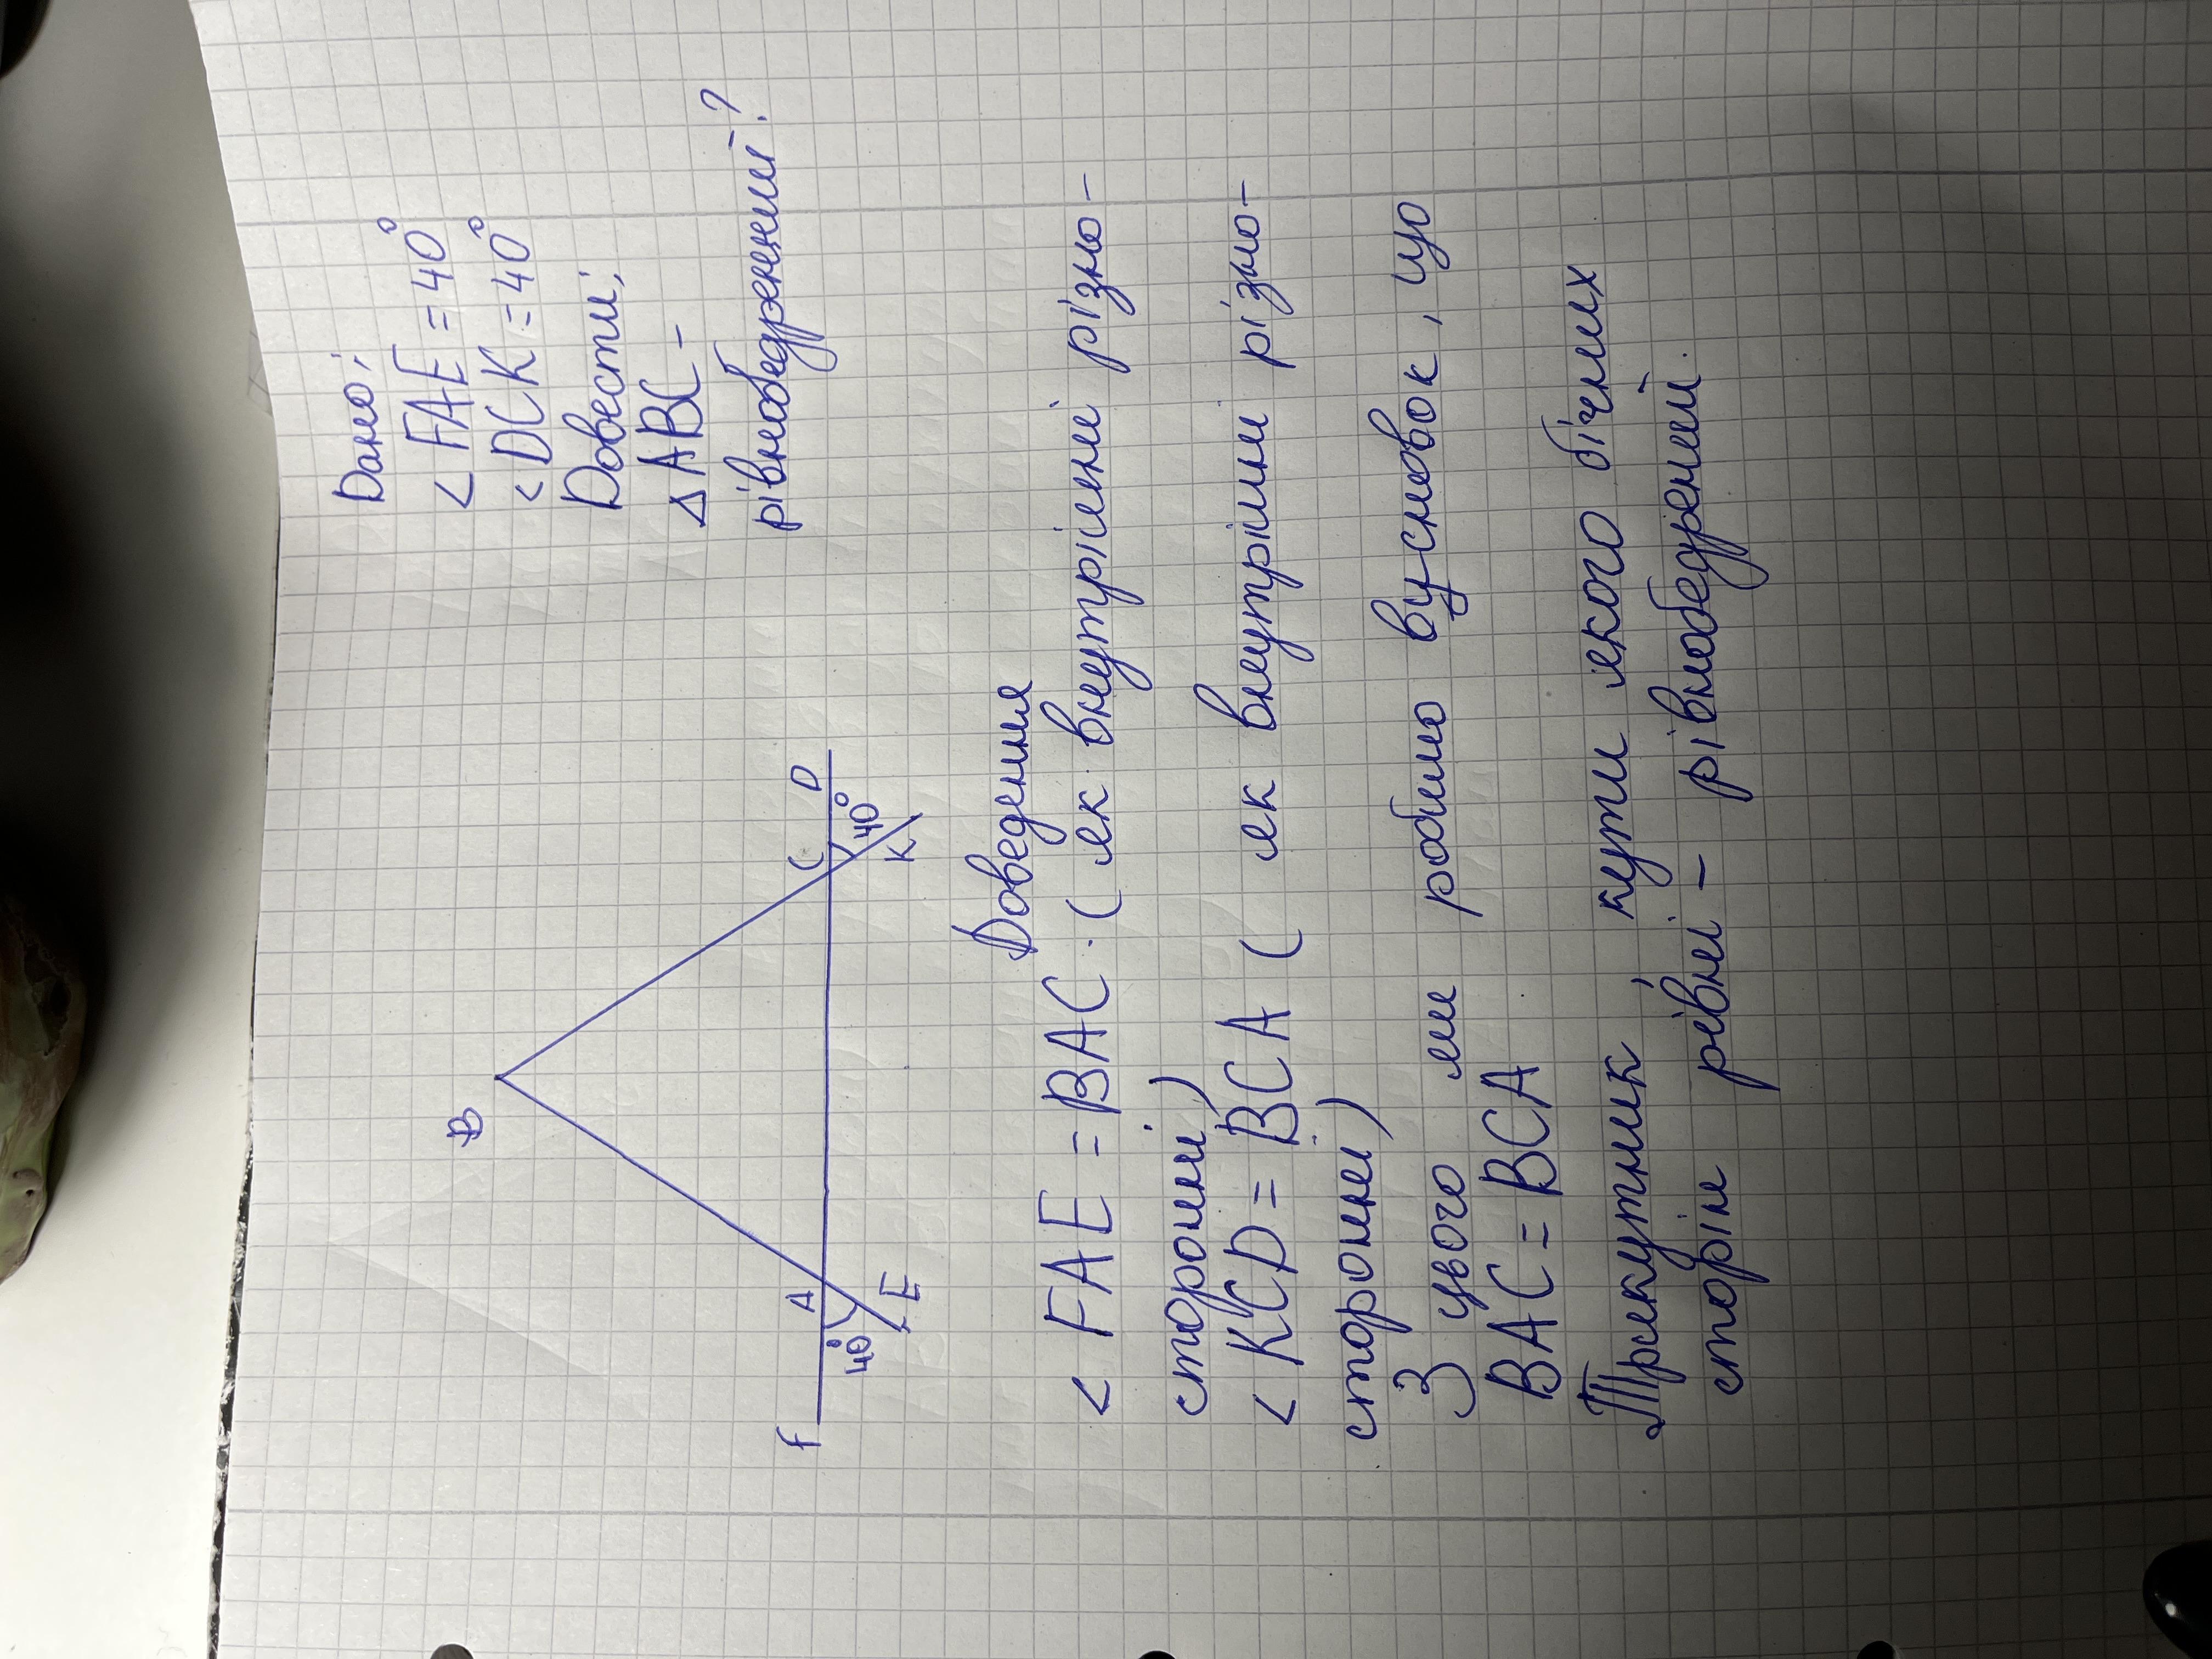 Дано;
< FAE = 40°
< DCK = 40°
Довести;
△ ABC -
рівнобедренний?
B
F
A
C
D
40°
40°
E
K
Доведення
< FAE = BAC (як внутрішні різно-
сторонні)
< KCD = BCA ( як внутрішні різно-
сторонні)
З цього ми робимо висновок, що
BAC = BCA
Трикутник, кути якого бічних
сторін рівні - рівнобедрений.